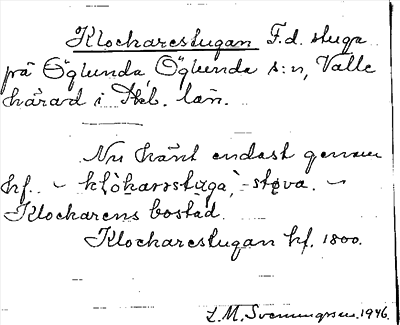 Klockarestugan F.d. stuga
på Öglunda, Öglunda s:n, Valle
härad i Skb. län.
Nu känt endast genom
hf. – klòkarstùga, -støva. –
Klockarens bostad.
Klockarestugan hf. 1800.
L.M. Svenungsson. 1946.